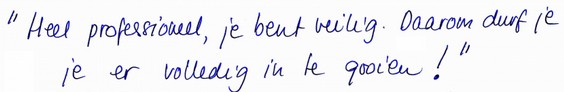 "Heel professioneel, je bent veilig. Daarom durf je
je er volledig in te gooien!"